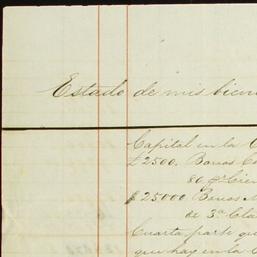 Estado de mis bien
Capital en la C
£2500. Bonos C
80
$25000 Bonos
de 3ª Cla
Cuarta parte qu
que hay en la